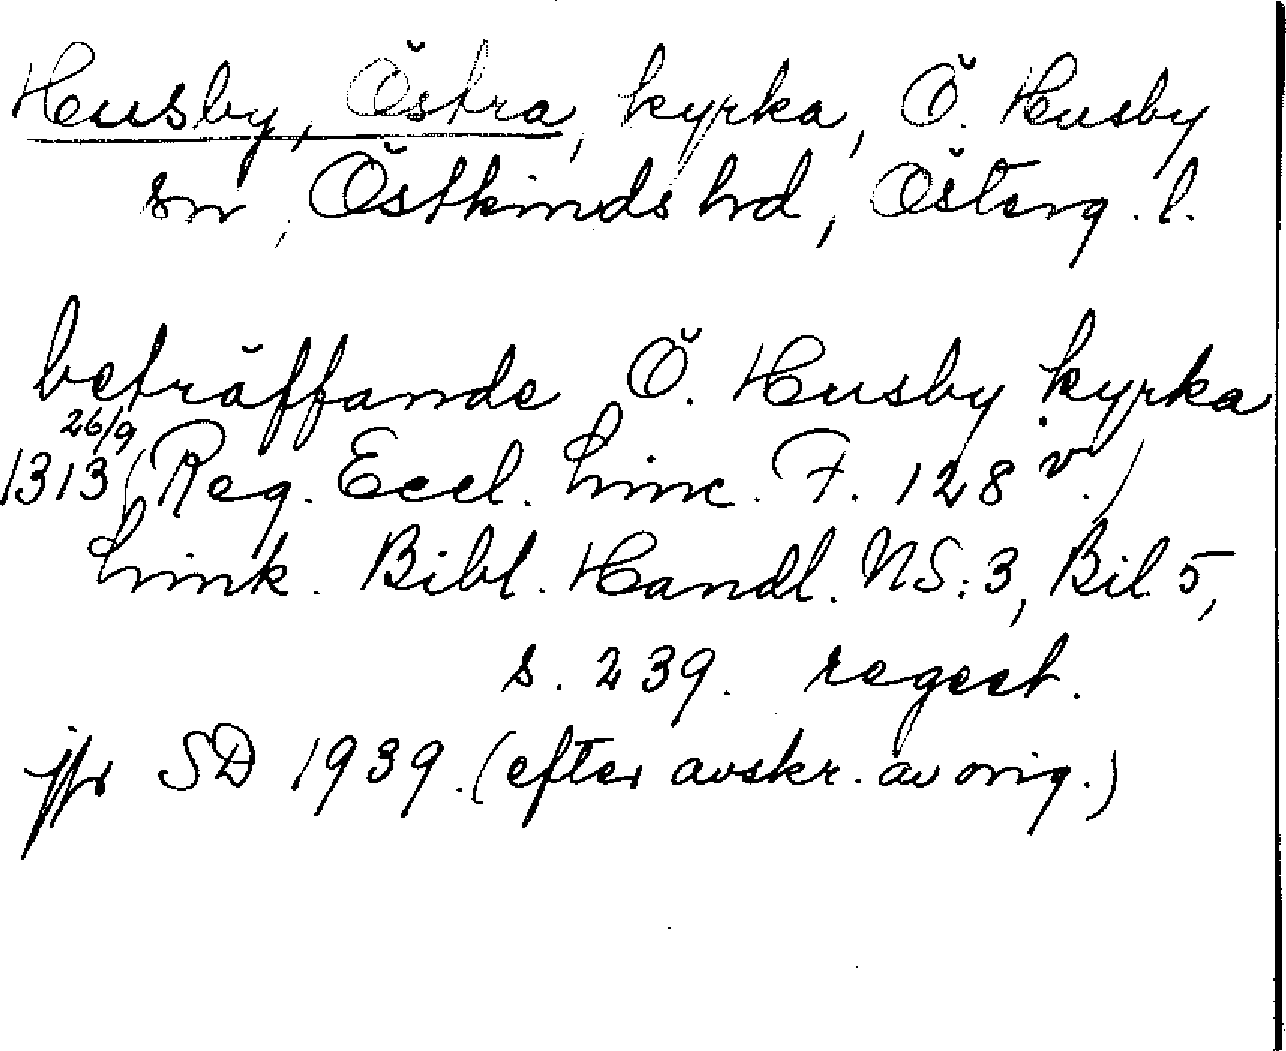 Husby, Östra, kyrka, Ö. Husby
sn, Östkinds hd, Österg. l.
beträffande Ö. Husby kyrka
26/9
1313 (Reg. Eccl. Linc. F. 128 v.)
Link. Bibl. Handl. NS:3, Bil. 5,
s. 239. regest.
jfr SD 1939. (efter avskr. av orig.)